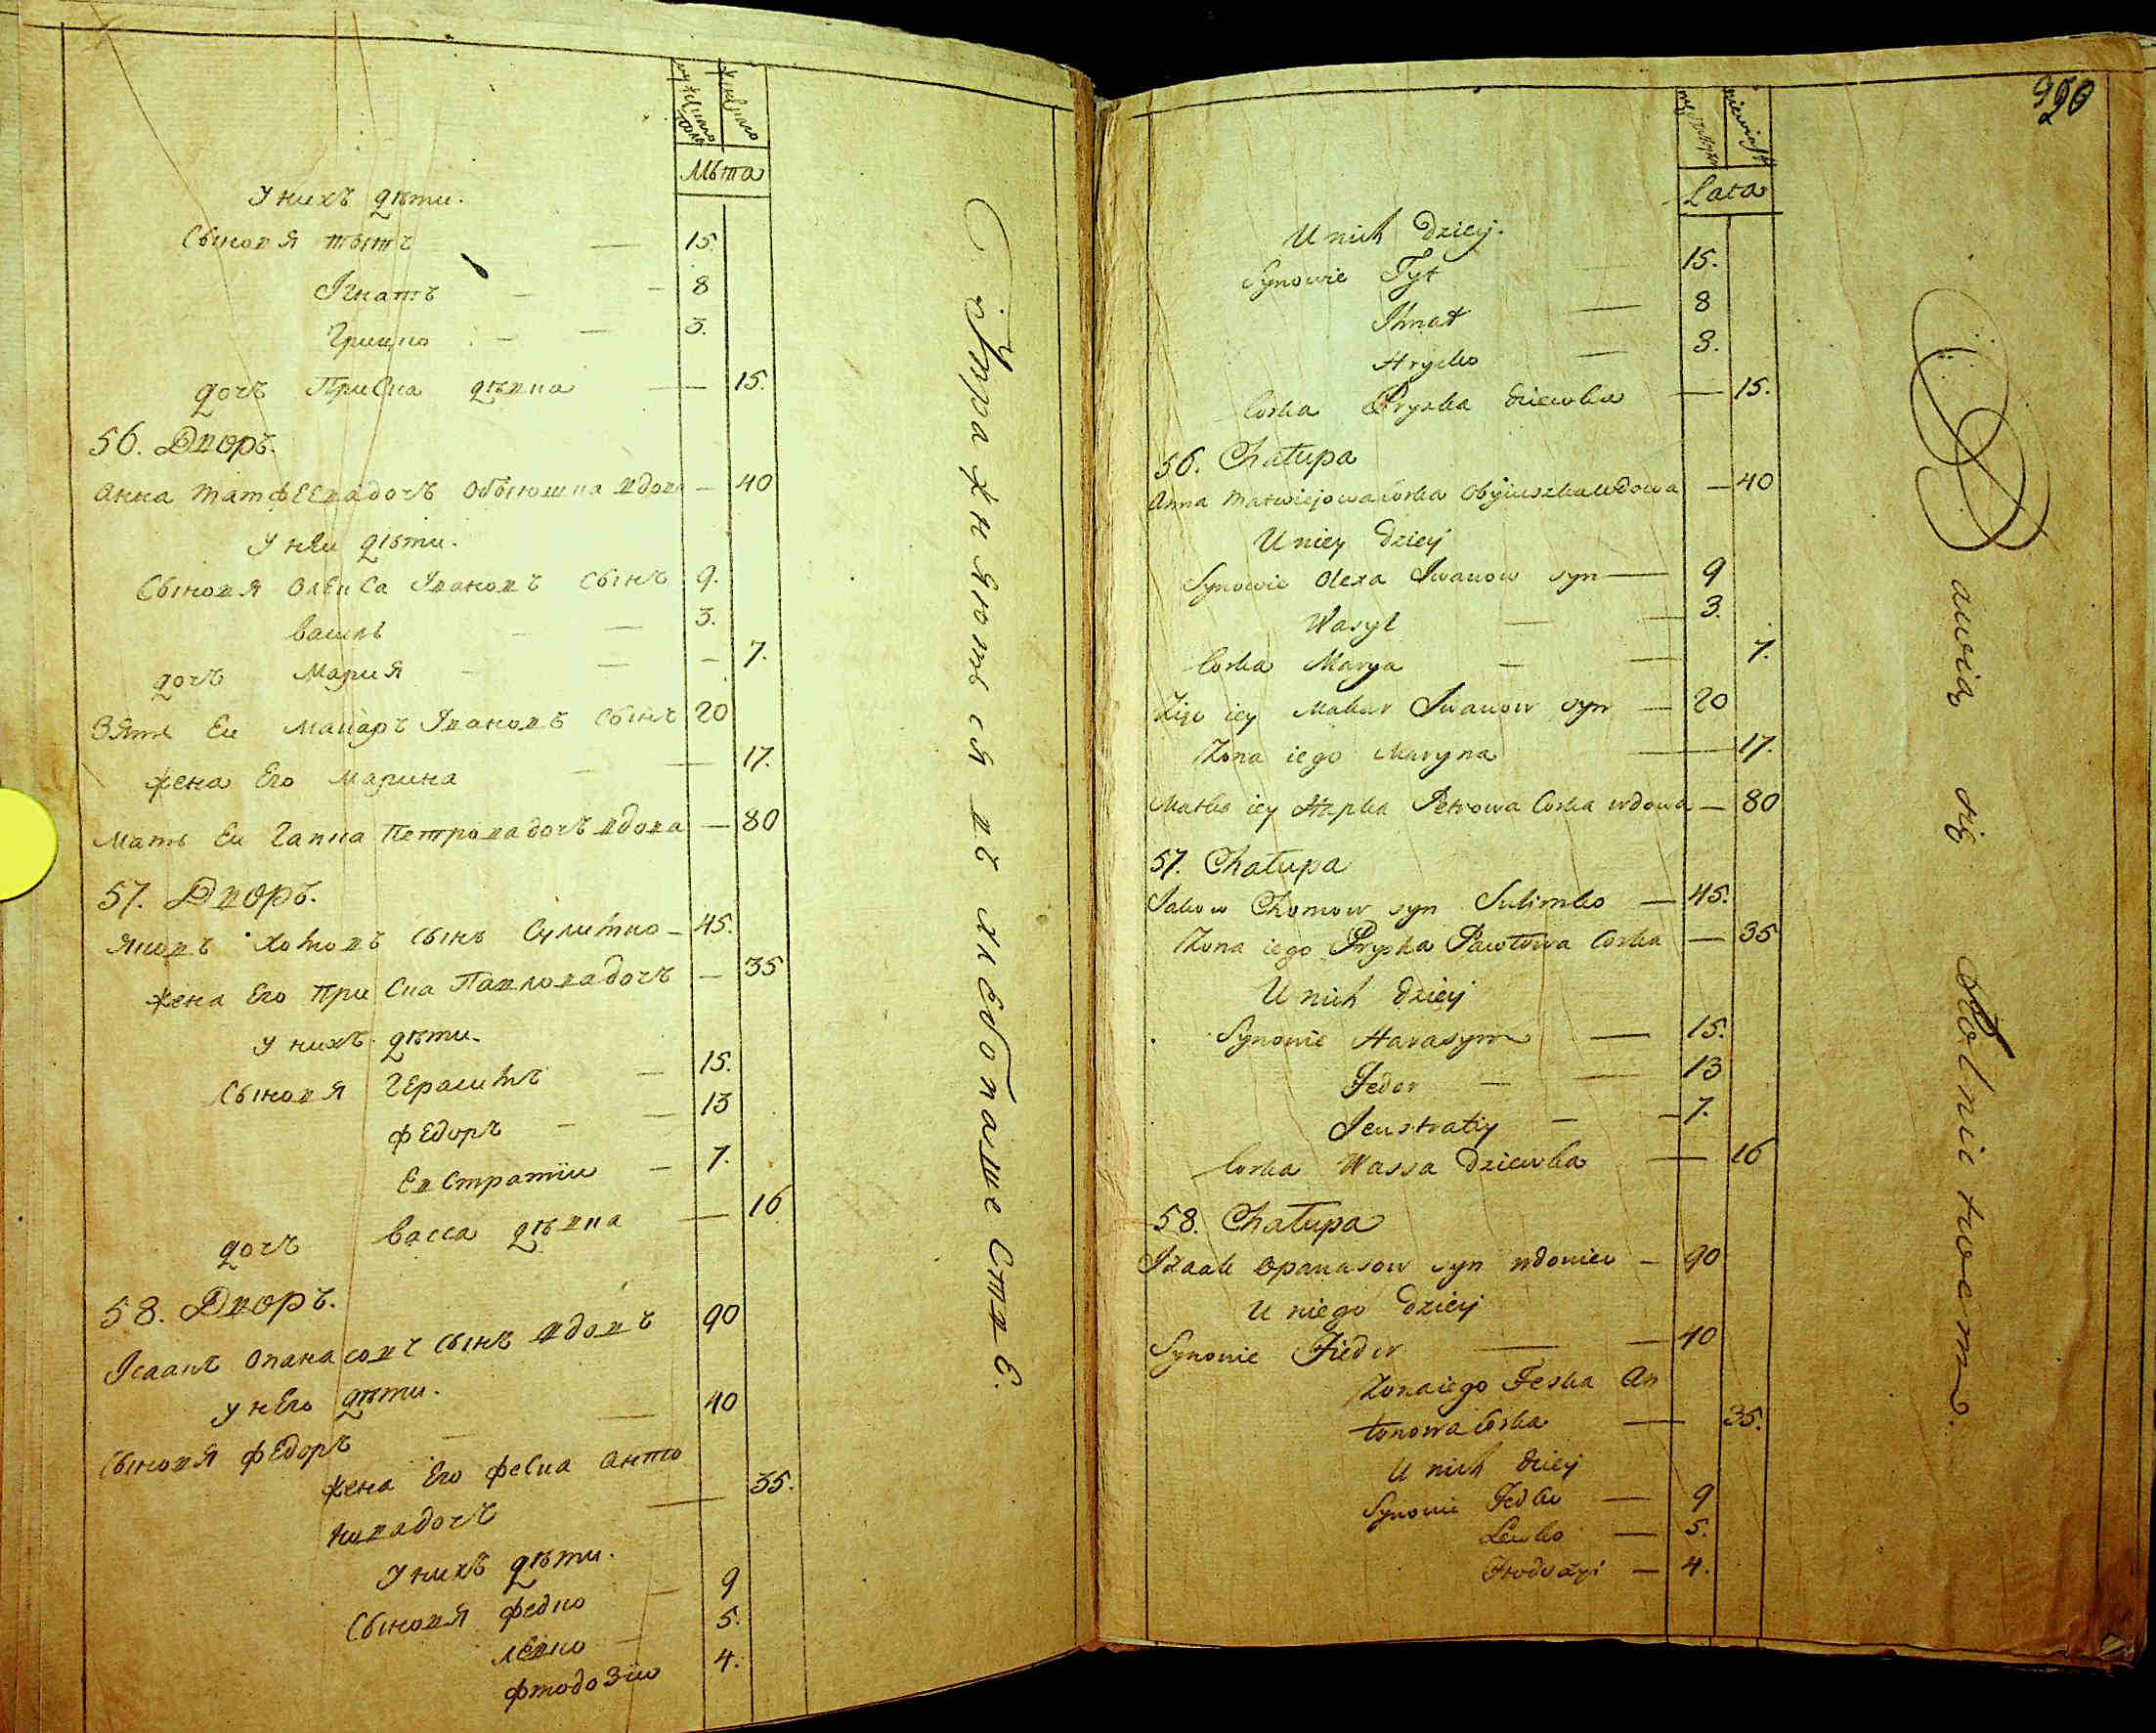 мужескаго пола
женскаго
Лѣта
У нихъ дѣти.
Сыновя Тытъ — 15.
Ігнатъ — — 8
Грицко — — 3.
дочъ Приска дѣвка — 15.
56. Дворъ.
Анна Матфеевадочъ Обыюшка вдова — 40
У неи дѣти.
Сыновя Олекса Івановъ сынъ 9.
Василь — — 3.
дочъ Мария — — — 7.
Зять Еи Макаръ Івановъ сынъ 20
жена Его Марина — — 17.
Мать Еи Гапка Петровадочъ вдова — 80
57. Дворъ.
Яковъ Хомовъ сынъ Сулимко — 45.
жена Его Приска Павловадочъ — 35
У нихъ дѣти.
Сыновя Герасимъ — 15.
Федоръ — — 13
Евстратіи — 7.
дочъ Васса дѣвка — 16
58. Дворъ.
Ісаакъ Опанасовъ сынъ вдовъ 90
У нЕго дѣти.
Сыновя Федоръ — — 40
жена Его Феска Анто
новадочъ — 35.
У нихъ дѣти.
Сыновя Федко — 9
Левко — 5.
Фтодозіи 4.
Упражняются въ хлебопашествѣ.
320
Lata
U nich dzieij.
Synowie Tyt — 15.
Ihnat — 8
Hrycko — 3.
Corka Pryska dziewka — 15.
56. Chałupa
Anna Matwiejowa Corka Obyiuszka wdowa — 40
U niey dzieij
Synowie Olexa Iwanow syn — 9
Wasyl — — 3.
Corka Marya — — 7.
Zięc iey Makar Iwanow syn — 20
Zona iego Maryna — 17.
Matka iey Hapka Petrowa Corka wdowa — 80
57. Chałupa
Jakow Chomow syn Sulimko — 45.
Zona iego Pryska Pawłowa Corka — 35
U nich dzieij
Synowie Harasym — 15.
Fedor — — 13
Jeustratiy — — 7.
Corka Wassa dziewka — 16
58. Chałupa
Izaak Opanasow syn wdowiec — 90
U niego dzieij
Synowie Fiedor — — 40
Zona iego Feska An
tonowa Corka — 35.
U nich dzieij
Synowie Fedko — 9
Lewko — 5.
Ftodozyi — 4.
Bawią się Rolnictwem.